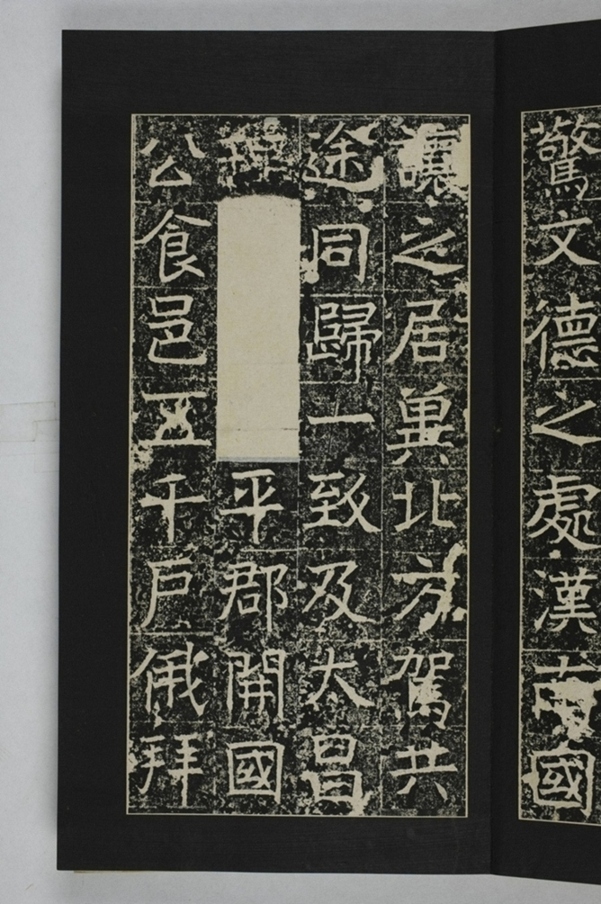 驚文德之處漢南國
讓之居冀北方駕共
途同歸一致及太昌
平郡開國
公食邑五千戶俄拜